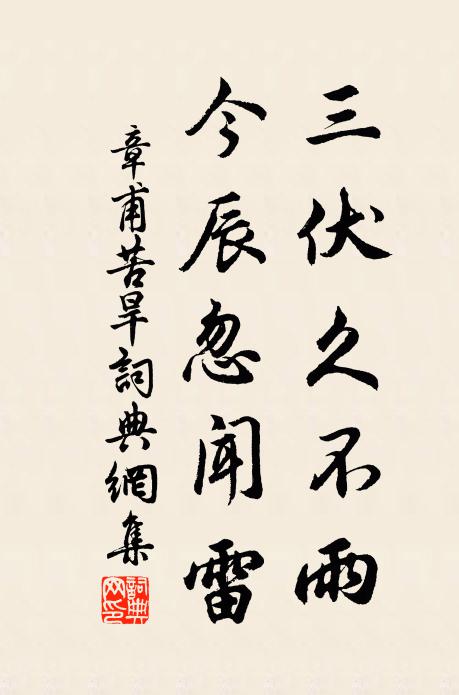 三伏久不雨
今辰忽闻雷
章甫苦旱詞典網集
詞典网印